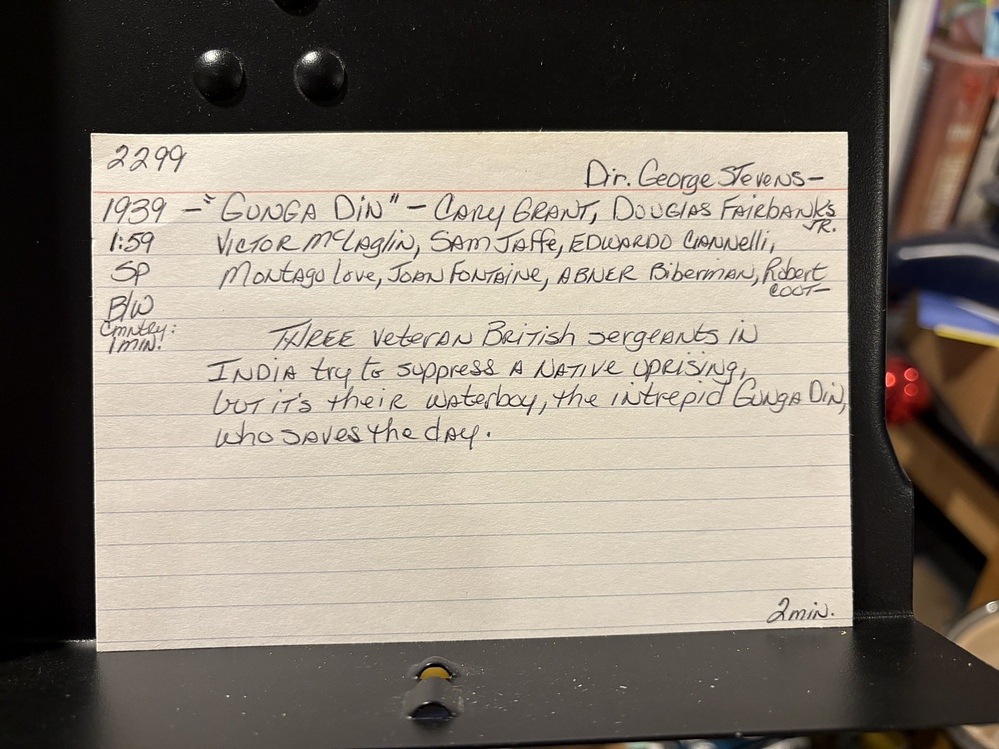 2299
Dir. George Stevens-
1939 - "GUNGA DIN" - CARY GRANT, DOUGLAS FAIRBANKS JR.
1:59 VICTOR McLAGLIN, SAM JAFFE, EDWARDO CIANNELLI,
SP MONTAGO LOVE, JOAN FONTAINE, ABNER BIBERMAN, Robert COOT-
B/W
Cmntry:
1 MIN. THREE VETERAN BRITISH SERGEANTS IN
INDIA try to SUPPRESS A NATIVE UPRISING,
BUT IT'S their WATERBOY, the INTREPID GUNGA DIN,
WHO SAVES the DAY.
2 MIN.